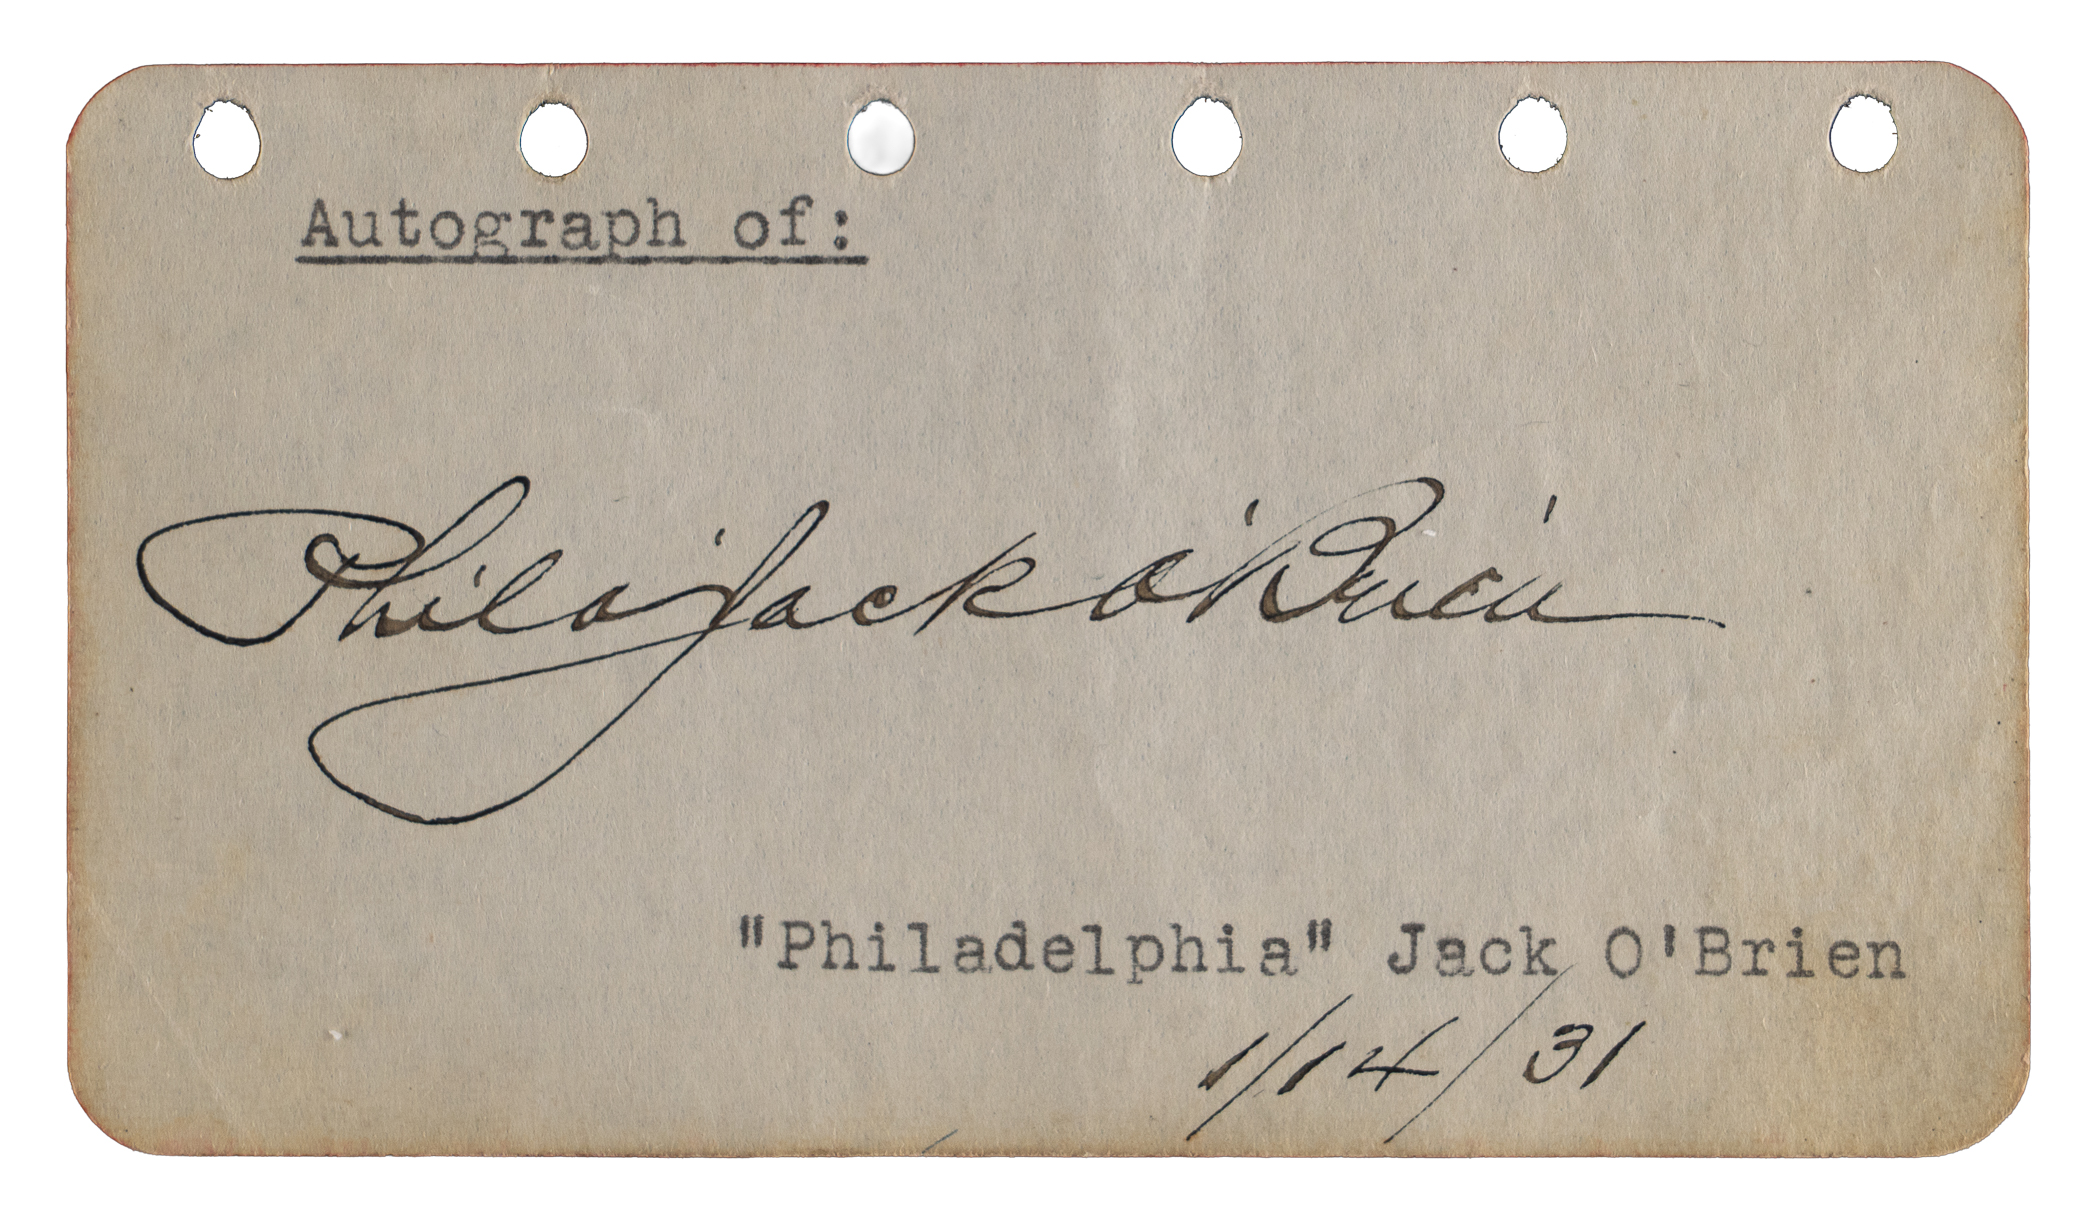 Autograph of:
Phila Jack O'Brien
"Philadelphia" Jack O'Brien
1/14/31